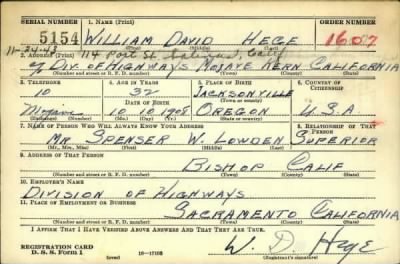 SERIAL NUMBER 1. NAME (Print) ORDER NUMBER
5154 WILLIAM DAVID HEGE 1607
11-24-43 114 Port St Salinas, Calif
2. ADDRESS (Print)
% DIV. OF HIGHWAYS MOJAVE KERN CALIFORNIA
(Number and street or R. F. D. number) (Town) (County) (State)
3. TELEPHONE 4. AGE IN YEARS 5. PLACE OF BIRTH 6. COUNTRY OF CITIZENSHIP
10 32 JACKSONVILLE
DATE OF BIRTH (Town or county)
Mojave 10 10 1908 OREGON U.S.A
(Exchange) (Number) (Mo.) (Day) (Yr.) (State or country)
7. NAME OF PERSON WHO WILL ALWAYS KNOW YOUR ADDRESS 8. RELATIONSHIP OF THAT PERSON
MR SPENSER W. LOWDEN SUPERIOR
(Mr., Mrs., Miss) (First) (Middle) (Last)
9. ADDRESS OF THAT PERSON
BISHOP CALIF
(Number and street or R. F. D. number) (Town) (County) (State)
10. EMPLOYER'S NAME
DIVISION OF HIGHWAYS
11. PLACE OF EMPLOYMENT OR BUSINESS
SACRAMENTO CALIFORNIA
(Number and street or R. F. D. number) (Town) (County) (State)
I AFFIRM THAT I HAVE VERIFIED ABOVE ANSWERS AND THAT THEY ARE TRUE.
REGISTRATION CARD
D. S. S. Form 1 (over) 16-17105 W. D. Hege